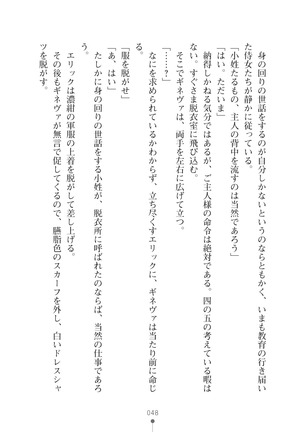 身の回りの世話をするのが自分しかないというのならともかく、いまも教育の行き届い
た侍女たちが静かに従っている。
「小姓たるもの、主人の背中を流すのは当然であろう」
「はい。ただいま」
納得しかねる気分ではあるが、ご主人様の命令は絶対である。四の五の考えている暇は
ない。すぐさま脱衣室に飛び込む。
そこでギネヴァは、両手を左右に広げて立つ。
「……？」
なにを求められているかわからず、立ち尽くすエリックに、ギネヴァは当たり前に命じ
る。
「服を脱がせ」
「あ、はい」
たしかに身の回りの世話をする小姓が、脱衣所に呼ばれたのならば、当然の仕事であろ
う。
エリックは濃紺の軍服の上着を脱がして差し上げる。
その後もギネヴァが無言で促してくるので、臙脂色のスカーフを外し、白いドレスシャ
ツを脱がす。
048